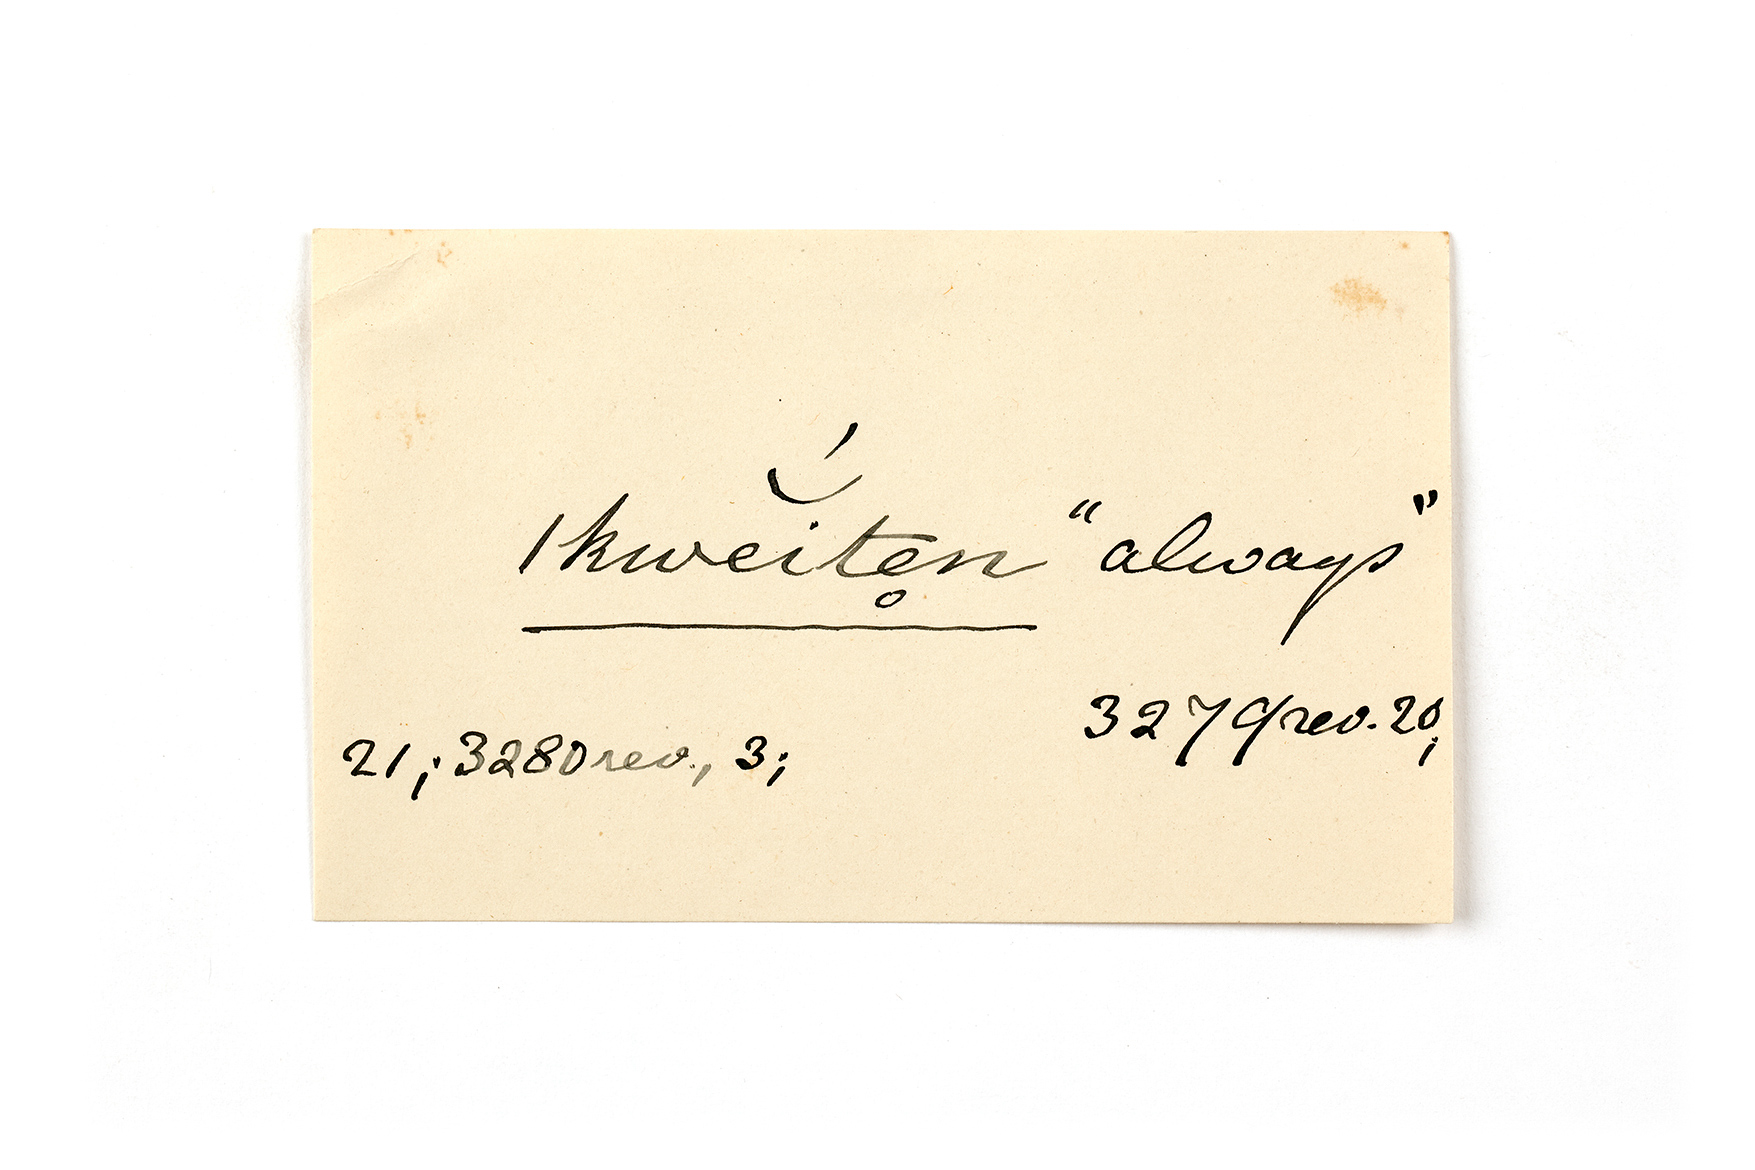 |kwéĭte̥n “always”
3279rev. 20,
21,; 3280rev., 3;